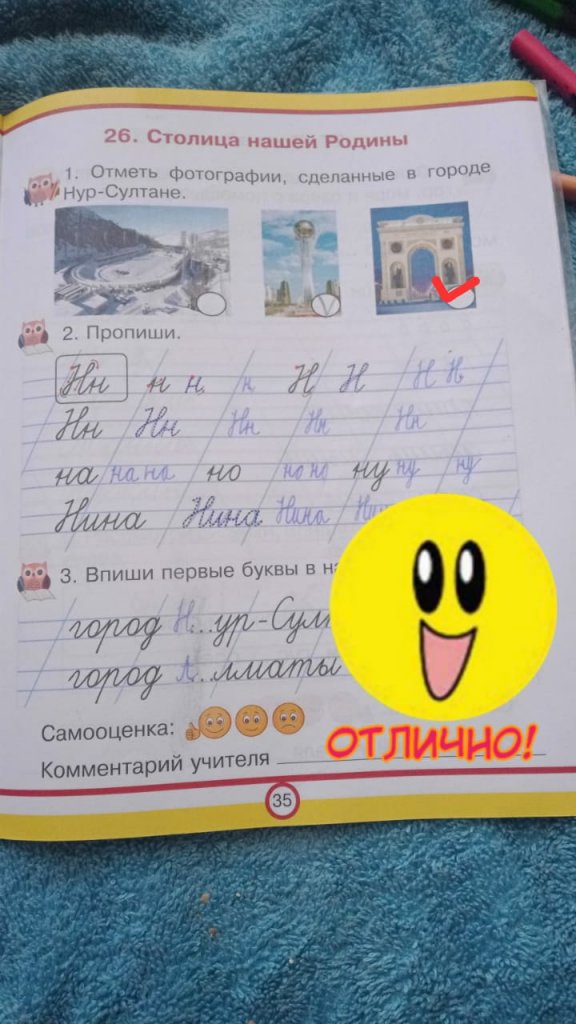 26. Столица нашей Родины
1. Отметь фотографии, сделанные в городе
Нур-Султане.
2. Пропиши.
Нн н н н Н Н Н Н
Нн Нн Нн Нн Нн
на на на но но но ну ну ну
Нина Нина Нина
3. Впиши первые буквы в
город Н..ур-Сул
город А..лматы
Самооценка:
ОТЛИЧНО!
Комментарий учителя
35